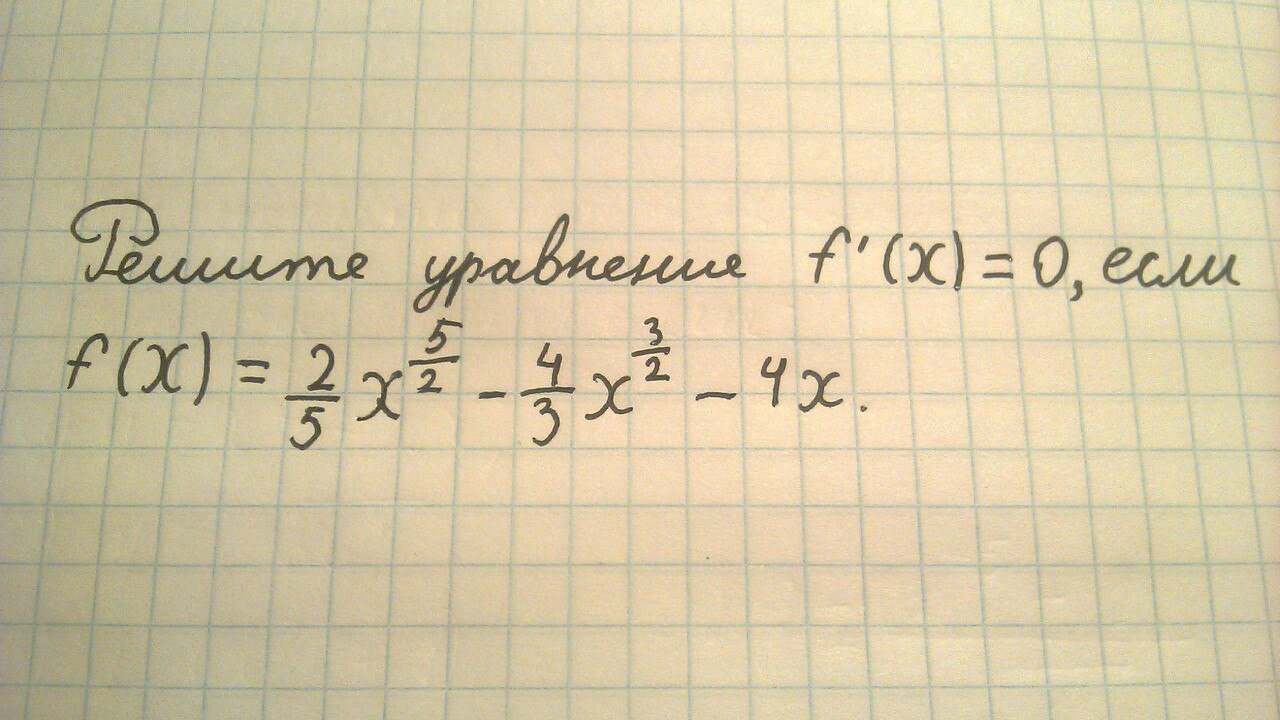 Решите уравнение f'(x) = 0, если
f(x) = \frac{2}{5} x^{\frac{5}{2}} - \frac{4}{3} x^{\frac{3}{2}} - 4x.